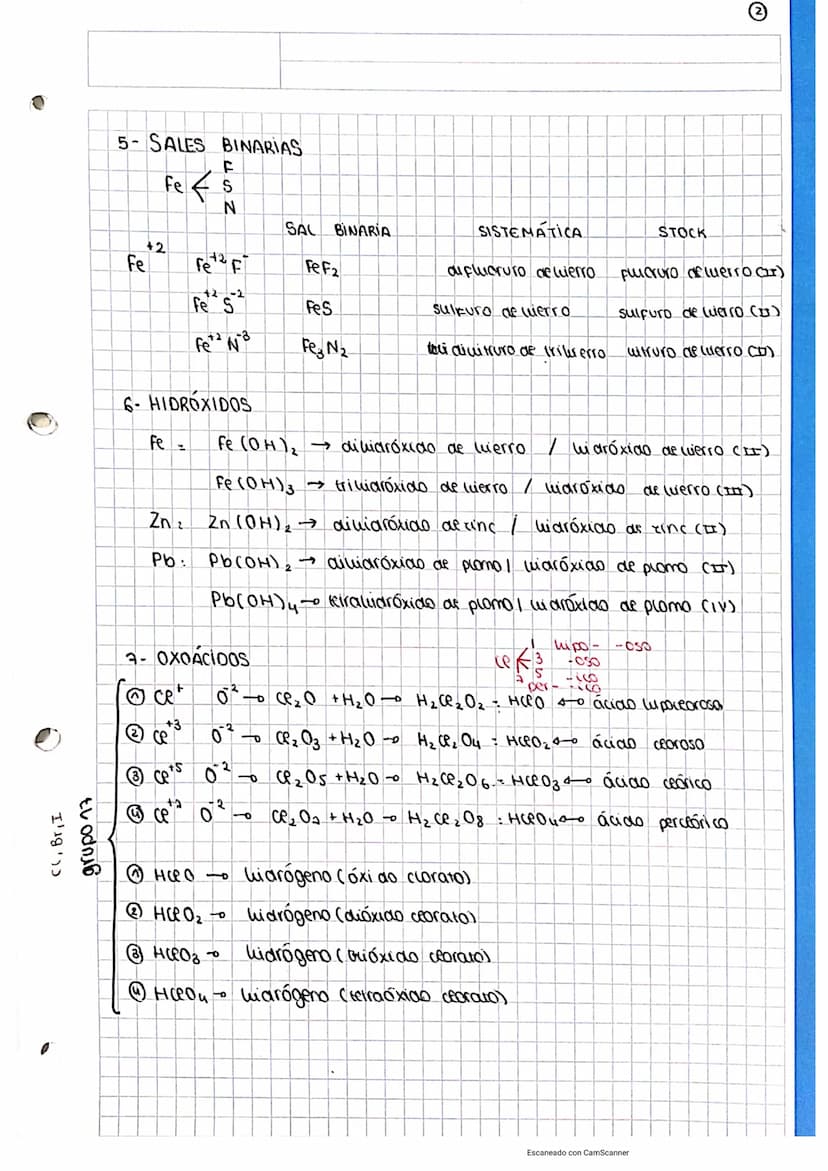 2
5- SALES BINARIAS
F
Fe < S
N
SAL BINARIA SISTEMÁTICA STOCK
Fe+2 Fe+2 F- FeF2 difluoruro de hierro fluoruro de hierro (II)
Fe+2 S-2 FeS sulfuro de hierro sulfuro de hierro (II)
Fe+2 N-3 Fe3N2 dinitruro de trihierro nitruro de hierro (II)
6- HIDRÓXIDOS
Fe = Fe(OH)2 → dihidróxido de hierro / hidróxido de hierro (II)
Fe(OH)3 → trihidróxido de hierro / hidróxido de hierro (III)
Zn: Zn(OH)2 → dihidróxido de zinc / hidróxido de zinc (II)
Pb: Pb(OH)2 → dihidróxido de plomo / hidróxido de plomo (II)
Pb(OH)4 → tetrahidróxido de plomo / hidróxido de plomo (IV)
7- OXOÁCIDOS
Cl < 1 hipo- -oso
3 -oso
5 -ico
7 per- -ico
① Cl+ O-2 → Cl2O + H2O → H2Cl2O2 = HClO ↔ ácido hipocloroso
② Cl+3 O-2 → Cl2O3 + H2O → H2Cl2O4 = HClO2 ↔ ácido cloroso
③ Cl+5 O-2 → Cl2O5 + H2O → H2Cl2O6 = HClO3 ↔ ácido clórico
④ Cl+7 O-2 → Cl2O7 + H2O → H2Cl2O8 = HClO4 ↔ ácido perclórico
Cl, Br, I
grupo 17
① HClO → hidrógeno (óxido clorato)
② HClO2 → hidrógeno (dióxido clorato)
③ HClO3 → hidrógeno (trióxido clorato)
④ HClO4 → hidrógeno (tetraóxido clorato)
Escaneado con CamScanner